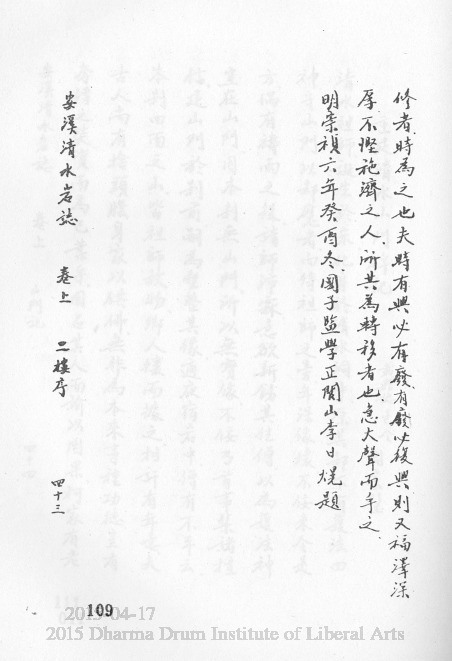 修者時為之也夫時有興必有廢有廢必復興則又福澤深
厚不慳施濟之人所共為轉移者也急大聲而手之
明崇禎六年癸酉冬國子監學正閩山李日烶題
安溪清水岩誌 卷上 二樓序 四十三
109
2015-04-17
2015 Dharma Drum Institute of Liberal Arts